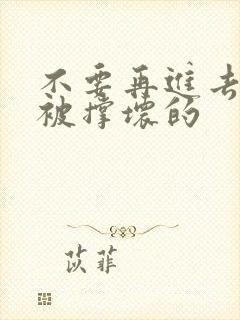 不要再进去
被撑坏的
苡菲